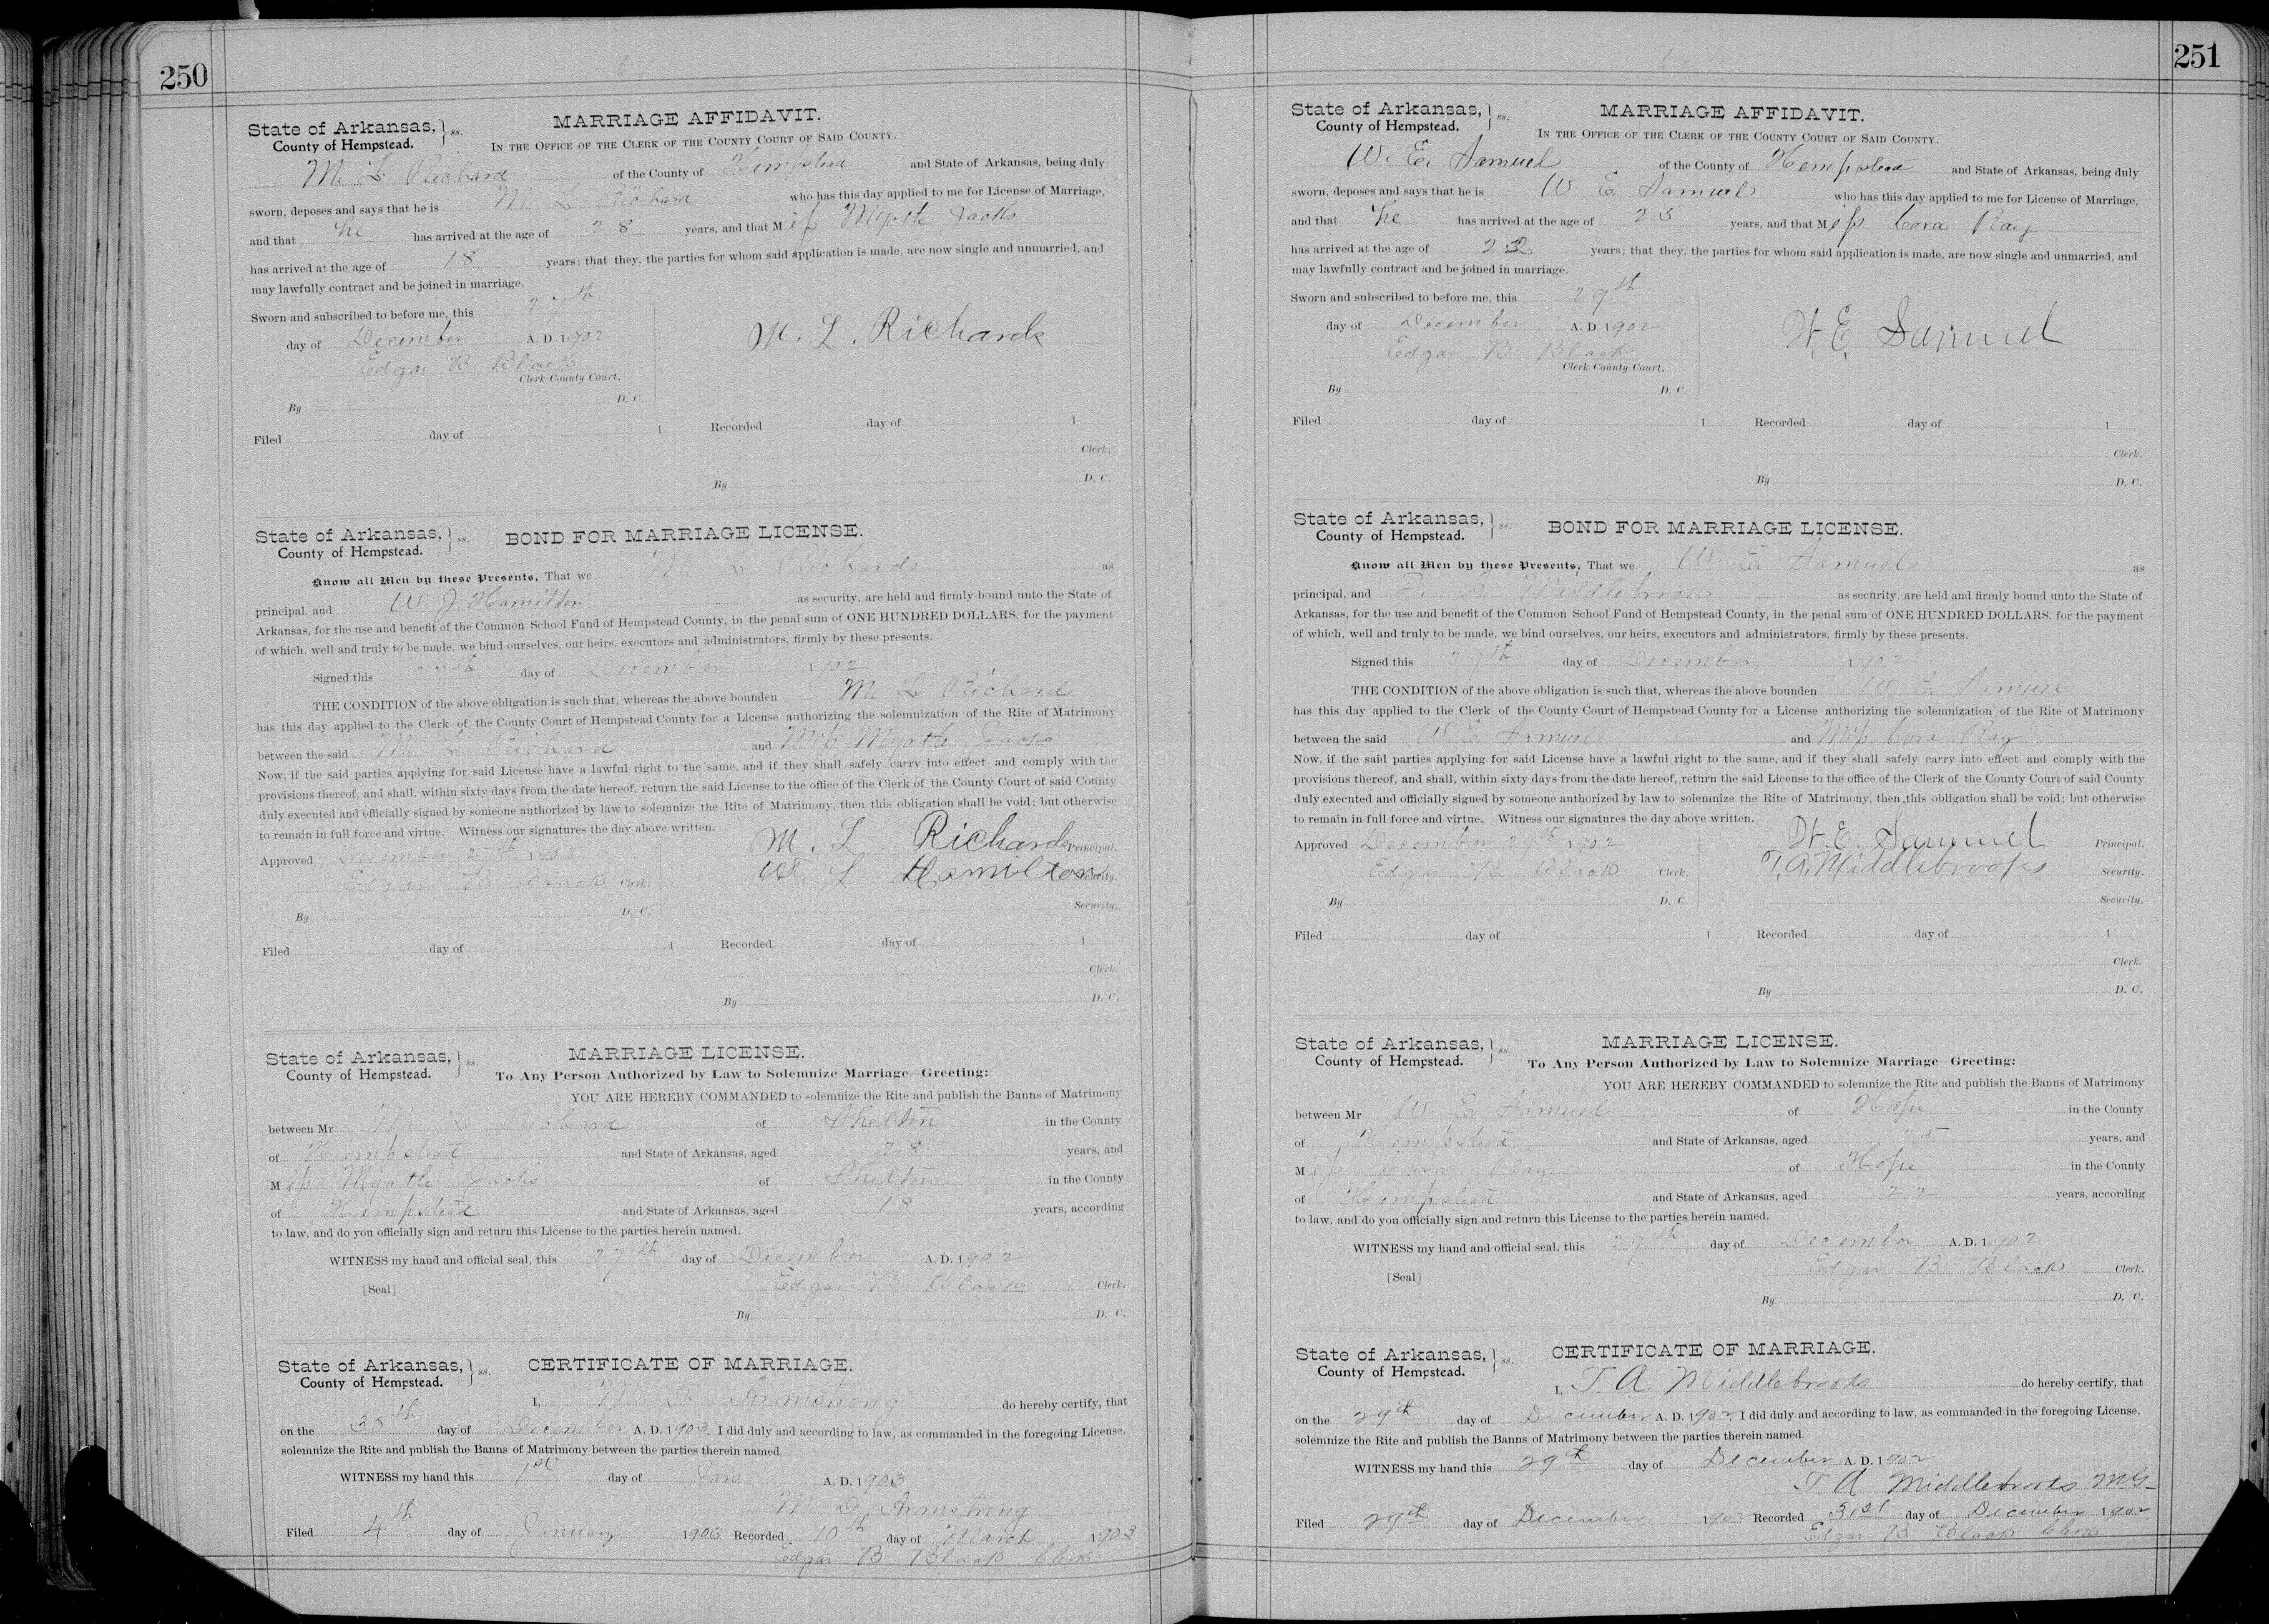 250
MARRIAGE AFFIDAVIT.
State of Arkansas, } ss.
County of Hempstead.
IN THE OFFICE OF THE CLERK OF THE COUNTY COURT OF SAID COUNTY.
M. L. Richard of the County of Hempstead and State of Arkansas, being duly
sworn, deposes and says that he is M L Richard who has this day applied to me for License of Marriage,
and that he has arrived at the age of 28 years, and that Miss Myrtle Jacks
has arrived at the age of 18 years; that they, the parties for whom said application is made, are now single and unmarried, and
may lawfully contract and be joined in marriage.
Sworn and subscribed to before me, this 27th
day of December A. D. 1902
M. L. Richards
Edgar B Black
Clerk County Court.
By D. C.
Filed day of 1 Recorded day of 1
Clerk.
By D. C.
State of Arkansas, } ss.
County of Hempstead.
BOND FOR MARRIAGE LICENSE.
Know all Men by these Presents, That we M L Richards as
principal, and W J Hamilton as security, are held and firmly bound unto the State of
Arkansas, for the use and benefit of the Common School Fund of Hempstead County, in the penal sum of ONE HUNDRED DOLLARS, for the payment
of which, well and truly to be made, we bind ourselves, our heirs, executors and administrators, firmly by these presents.
Signed this 27th day of December 1902
THE CONDITION of the above obligation is such that, whereas the above bounden M L Richard
has this day applied to the Clerk of the County Court of Hempstead County for a License authorizing the solemnization of the Rite of Matrimony
between the said M L Richard and Miss Myrtle Jacks
Now, if the said parties applying for said License have a lawful right to the same, and if they shall safely carry into effect and comply with the
provisions thereof, and shall, within sixty days from the date hereof, return the said License to the office of the Clerk of the County Court of said County
duly executed and officially signed by someone authorized by law to solemnize the Rite of Matrimony, then this obligation shall be void; but otherwise
to remain in full force and virtue. Witness our signatures the day above written.
Approved December 27th 1902
M. L. Richards Principal.
Edgar B Black Clerk.
L Hamilton Security.
By D. C.
Security.
Filed day of 1 Recorded day of 1
Clerk.
By D. C.
State of Arkansas, } ss.
County of Hempstead.
MARRIAGE LICENSE.
To Any Person Authorized by Law to Solemnize Marriage—Greeting:
YOU ARE HEREBY COMMANDED to solemnize the Rite and publish the Banns of Matrimony
between Mr M L Richard of Shelton in the County
of Hempstead and State of Arkansas, aged 28 years, and
Miss Myrtle Jacks of Shelton in the County
of Hempstead and State of Arkansas, aged 18 years, according
to law, and do you officially sign and return this License to the parties herein named.
WITNESS my hand and official seal, this 27th day of December A. D. 1902
[Seal] Edgar B. Black Clerk.
By D. C.
State of Arkansas, } ss.
County of Hempstead.
CERTIFICATE OF MARRIAGE.
I, M D Armstrong do hereby certify, that
on the 30th day of December A. D. 1903, I did duly and according to law, as commanded in the foregoing License,
solemnize the Rite and publish the Banns of Matrimony between the parties therein named.
WITNESS my hand this 1st day of Jan A. D. 1903
M D Armstrong
Filed 4th day of January 1903 Recorded 10th day of March 1903
Edgar B Black Clerk
251
MARRIAGE AFFIDAVIT.
State of Arkansas, } ss.
County of Hempstead.
IN THE OFFICE OF THE CLERK OF THE COUNTY COURT OF SAID COUNTY.
W. E. Samuel of the County of Hempstead and State of Arkansas, being duly
sworn, deposes and says that he is W E Samuel who has this day applied to me for License of Marriage,
and that he has arrived at the age of 25 years, and that Miss Cora Ray
has arrived at the age of 22 years; that they, the parties for whom said application is made, are now single and unmarried, and
may lawfully contract and be joined in marriage.
Sworn and subscribed to before me, this 29th
day of December A. D 1902
W. E. Samuel
Edgar B Black
Clerk County Court.
By D. C.
Filed day of 1 Recorded day of 1
Clerk.
By D. C.
State of Arkansas, } ss.
County of Hempstead.
BOND FOR MARRIAGE LICENSE.
Know all Men by these Presents, That we W. E. Samuel as
principal, and T. A. Middlebrooks as security, are held and firmly bound unto the State of
Arkansas, for the use and benefit of the Common School Fund of Hempstead County, in the penal sum of ONE HUNDRED DOLLARS, for the payment
of which, well and truly to be made, we bind ourselves, our heirs, executors and administrators, firmly by these presents.
Signed this 29th day of December 1902
THE CONDITION of the above obligation is such that, whereas the above bounden W E Samuel
has this day applied to the Clerk of the County Court of Hempstead County for a License authorizing the solemnization of the Rite of Matrimony
between the said W E Samuel and Miss Cora Ray
Now, if the said parties applying for said License have a lawful right to the same, and if they shall safely carry into effect and comply with the
provisions thereof, and shall, within sixty days from the date hereof, return the said License to the office of the Clerk of the County Court of said County
duly executed and officially signed by someone authorized by law to solemnize the Rite of Matrimony, then this obligation shall be void; but otherwise
to remain in full force and virtue. Witness our signatures the day above written.
Approved December 29th 1902
W. E. Samuel Principal.
Edgar B Black Clerk.
T. A. Middlebrooks Security.
By D. C.
Security.
Filed day of 1 Recorded day of 1
Clerk.
By D. C.
State of Arkansas, } ss.
County of Hempstead.
MARRIAGE LICENSE.
To Any Person Authorized by Law to Solemnize Marriage—Greeting:
YOU ARE HEREBY COMMANDED to solemnize the Rite and publish the Banns of Matrimony
between Mr W. E. Samuel of Hope in the County
of Hempstead and State of Arkansas, aged 25 years, and
Miss Cora Ray of Hope in the County
of Hempstead and State of Arkansas, aged 22 years, according
to law, and do you officially sign and return this License to the parties herein named.
WITNESS my hand and official seal, this 29th day of December A. D. 1902
[Seal] Edgar B Black Clerk.
By D. C.
State of Arkansas, } ss.
County of Hempstead.
CERTIFICATE OF MARRIAGE.
I, T. A. Middlebrooks do hereby certify, that
on the 29th day of December A. D. 1902, I did duly and according to law, as commanded in the foregoing License,
solemnize the Rite and publish the Banns of Matrimony between the parties therein named.
WITNESS my hand this 29th day of December A. D. 1902
T A Middlebrooks MG
Filed 29th day of December 1902 Recorded 31st day of December 1902.
Edgar B Black Clerk